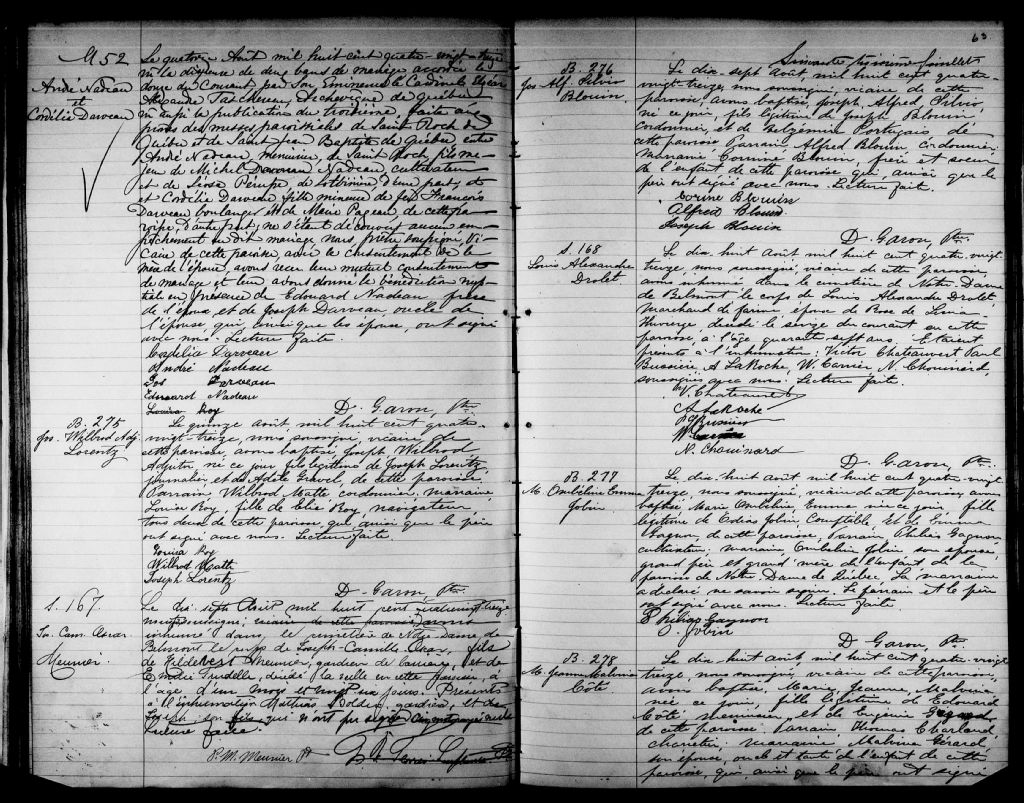 M 52
André Nadeau
et
Cordélie Darveau
Le quatorze Août mil huit cent quatre-vingt-treize
vu la dispense de deux bans de mariage accordée le
douze du courant par Son Eminence le Cardinal Elzéar
Alexandre Taschereau, Archevêque de Québec
vu aussi la publication du troisième, faite aux
prônes des messes paroissiales de Saint Roch de
Québec et de Saint Jean Baptiste de Québec entre
André Nadeau, menuisier, de Saint Roch, fils ma-
jeur de Michel Nadeau, cultivateur
et de Lotbinière d'une part, et
et Cordélie Darveau fille mineure de feu François
Darveau boulanger et de Marie Pageau de cette pa-
roisse, d'autre part; ne s'étant découvert aucun em-
pêchement au dit mariage, Nous, prêtre soussigné, vi-
caire de cette paroisse, avec le consentement de la
mère de l'épouse, avons reçu leur mutuel consentement
de mariage et leur avons donné la bénédiction nup-
tiale en présence de Edouard Nadeau frère
de l'époux et de Joseph Darveau, oncle de
l'épouse, qui, ainsi que les époux, ont signé
avec nous. Lecture faite.
Cordélia Darveau
André Nadeau
Jos Darveau
Edouard Nadeau
Louisa Roy
D. Garon, Ptre
B. 275
Jos. Wilbrod Adj.
Lorentz
Le quinze Août, mil huit cent quatre-
vingt-treize, nous soussigné, vicaire de
cette paroisse, avons baptisé, Joseph, Wilbrod
Adjutor, né ce jour fils légitime de Joseph Lorentz,
journalier, et de Adèle Gravel, de cette paroisse.
Parrain Wilbrod Matte cordonnier, marraine
Louisa Roy, fille de Elie Roy, navigateur,
tous deux de cette paroisse, qui, ainsi que le père
ont signé avec nous. Lecture faite.
Louisa Roy
Wilbrod Matte
Joseph Lorentz
D. Garon, Ptre
S. 167
Jos. Cam. Oscar
Meunier
Le dix sept Août mil huit cent
nous soussigné, vicaire de cette paroisse avons
inhumé dans le cimetière de Notre-Dame de
Belmont le corps de Joseph-Camille Oscar, fils
de Hildevert Meunier, gardien de barrière, et de
décédé la veille en cette paroisse, à
l'âge d'un mois et jours. Présents
à l'inhumation Mathias gardien, et de
Joseph son fils qui n'ont pu signer
lecture faite.
P. M. Meunier Pt
63
Soixante troisième feuillet
B. 276
Jos. Alf. Silvio
Blouin
Le dix-sept Août, mil huit cent quatre-
vingt-treize, nous soussigné, vicaire de cette
paroisse, avons baptisé, Joseph, Alfred, Silvio,
né ce jour, fils légitime de Joseph Blouin,
cordonnier, et de Portugais de
cette paroisse. Parrain, Alfred Blouin, cordonnier.
Marraine Corinne Blouin, frère et soeur
de l'enfant de cette paroisse qui, ainsi que le
père ont signé avec nous. Lecture faite.
Corine Blouin
Alfred Blouin
Joseph Blouin
D. Garon, Ptre
S. 168
Louis Alexandre
Drolet
Le dix huit Août mil huit cent quatre vingt
treize, nous soussigné, vicaire de cette paroisse,
avons inhumé dans le cimetière de Notre Dame
de Belmont le corps de Louis Alexandre Drolet
marchand de farine époux de Rose de Lima
décédé le seize du courant en cette
paroisse, à l'âge quarante sept ans. Etaient
présents à l'inhumation: Victor Chateauvert Paul
Bussière A LaRoche, W. Carrier N. Chouinard,
soussignés avec nous. Lecture faite.
V. Chateauvert
A. LaRoche
P. Bussière
W. Carrier
N. Chouinard
D. Garon, Ptre
B. 277
M. Ombéline Emma
Jobin
Le dix huit Août, mil huit cent quatre-vingt
treize, nous soussigné, vicaire de cette paroisse, avons
baptisé, Marie Ombéline, Emma née ce jour, fille
légitime de Jobin, Comptable, et de Emma
Gagnon, de cette paroisse, Parrain Philias Gagnon
cultivateur; marraine Ombéline Jobin son épouse,
grand père et grand'mère de l'enfant de la
paroisse de Notre Dame de Québec. La marraine
a déclaré ne savoir signer. Le parrain et le père
ont signé avec nous. Lecture faite.
Philias Gagnon
O. Jobin
D. Garon, Ptre
B. 278
M. Jeanne Malvina
Côté
Le dix huit août, mil huit cent quatre-vingt
treize, nous soussigné, vicaire de cette paroisse,
avons baptisé, Marie, Jeanne, Malvina
née ce jour, fille légitime de Edouard
Côté menuisier et de Eugénie
de cette paroisse. Parrain Thomas Charland,
charretier, marraine Malvina Gérard,
son épouse, oncle et tante de l'enfant de cette
paroisse, qui, ainsi que le père ont signé